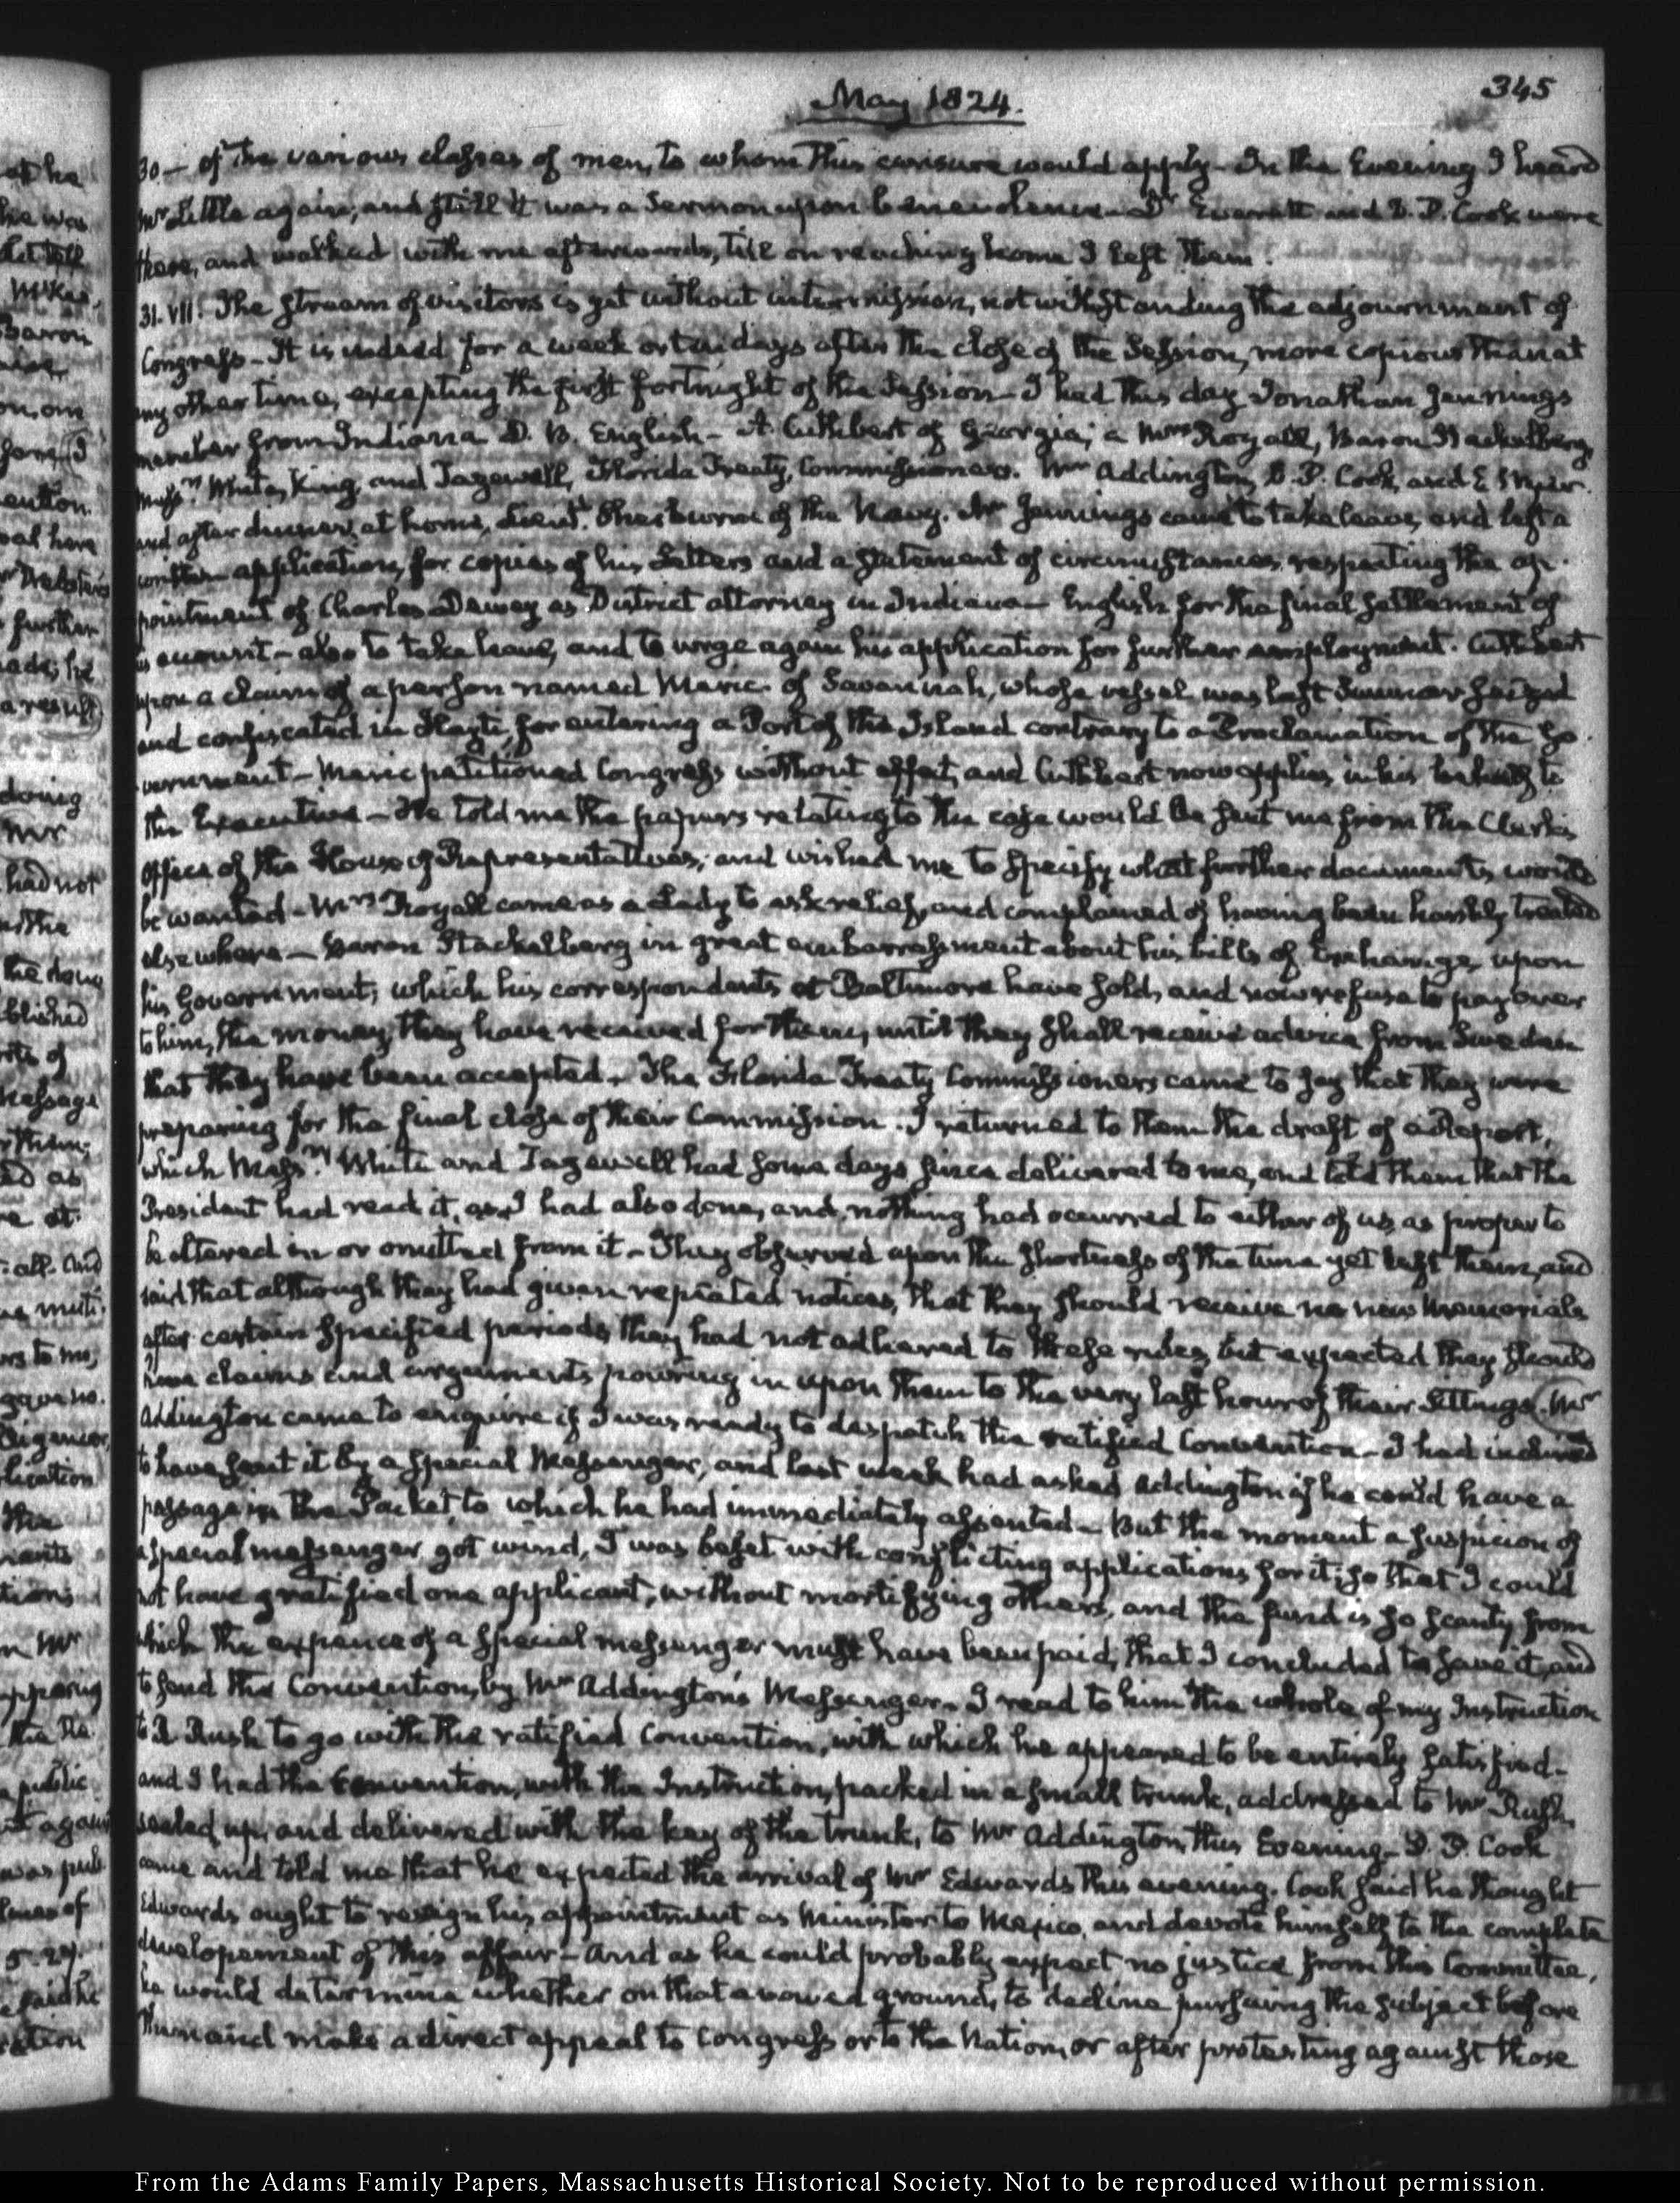 345
May 1824.
30.— of the various classes of men, to whom this censure would apply— In the Evening I heard
Mr Little again, and still it was a Sermon upon benevolence— Dr Everett and D. P. Cook were
there, and walked with me afterwards, till on reaching home I left them.
31. VII. The stream of visitors is yet without intermission, notwithstanding the adjournment of
Congress— It is indeed for a week or ten days after the close of the Session, more copious than at
any other time, excepting the first fortnight of the Session— I had this day Jonathan Jennings
member from Indiana G. B. English— A. Cuthbert of Georgia; a Mrs Royall, Baron Stackelberg,
Messrs White, King, and Tazewell, Florida Treaty, Commissioners. Mr Addington, D. P. Cook, and E
and after dinner, at home, Lieutt of the Navy. Mr Jennings came to take leave, and left a
written application, for copies of his Letters and a statement of circumstances, respecting the ap-
pointment of Charles Dewey as District attorney in Indiana— English for the final settlement of
his account— also to take leave, and to urge again his application for further employment. Cuthbert
upon a claim of a person named of Savannah, whose vessel was last Summer seized
and confiscated in Hayti, for entering a Port of the Island contrary to a Proclamation of the Go-
vernment— petitioned Congress without effect, and Cuthbert now applies, in his behalf to
the Executive— He told me the papers relating to the case would be sent me from the Clerk's
office of the House of Representatives, and wished me to specify what further documents would
be wanted— Mrs Royall came as a Lady to ask relief, and complained of having been harshly treated
elsewhere— Baron Stackelberg in great embarrassment about his bills of Exchange upon
his Government, which his correspondents at Baltimore have sold, and now refuse to pay over
to him, the money they have received for them, until they shall receive advice from Sweden
that they have been accepted— The Florida Treaty Commissioners came to say that they were
preparing for the final close of their Commission. I returned to them the draft of a Report,
which Messrs White and Tazewell had some days since delivered to me, and told them that the
President had read it, as I had also done, and nothing had occurred to either of us, as proper to
be altered in or omitted from it— They observed upon the shortness of the time yet left them, and
said that although they had given repeated notices, that they should receive no new Memorials
after certain specified periods, they had not adhered to these rules, but expected they should
have claims and arguments pouring in upon them to the very last hour of their Sittings. Mr
Addington came to enquire if I was ready to despatch the ratified Convention— I had inclined
to have sent it by a special Messenger, and last week had asked Addington if he could have a
passage in the Packet, to which he had immediately assented— But the moment a suspicion of
a special messenger got wind, I was beset with conflicting applications for it; so that I could
not have gratified one applicant, without mortifying others, and the fund is so scanty from
which the expence of a special messenger must have been paid, that I concluded to save it, and
to send the Convention, by Mr Addington's Messenger— I read to him the whole of my Instruction
to R. Rush to go with the ratified Convention, with which he appeared to be entirely satisfied—
and I had the Convention, with the Instruction, packed in a small trunk, addressed to Mr Rush,
sealed up, and delivered with the key of the trunk, to Mr Addington, this Evening— D. P. Cook
came and told me that he expected the arrival of Mr Edwards this evening. Cook said he thought
Edwards ought to resign his appointment as Minister to Mexico, and devote himself to the complete
developement of this affair— And as he could probably expect no justice from this Committee,
he would determine whether on that avowed ground, to decline pursuing the subject before
them and make a direct appeal to Congress or to the Nation, or after protesting against those
From the Adams Family Papers, Massachusetts Historical Society. Not to be reproduced without permission.